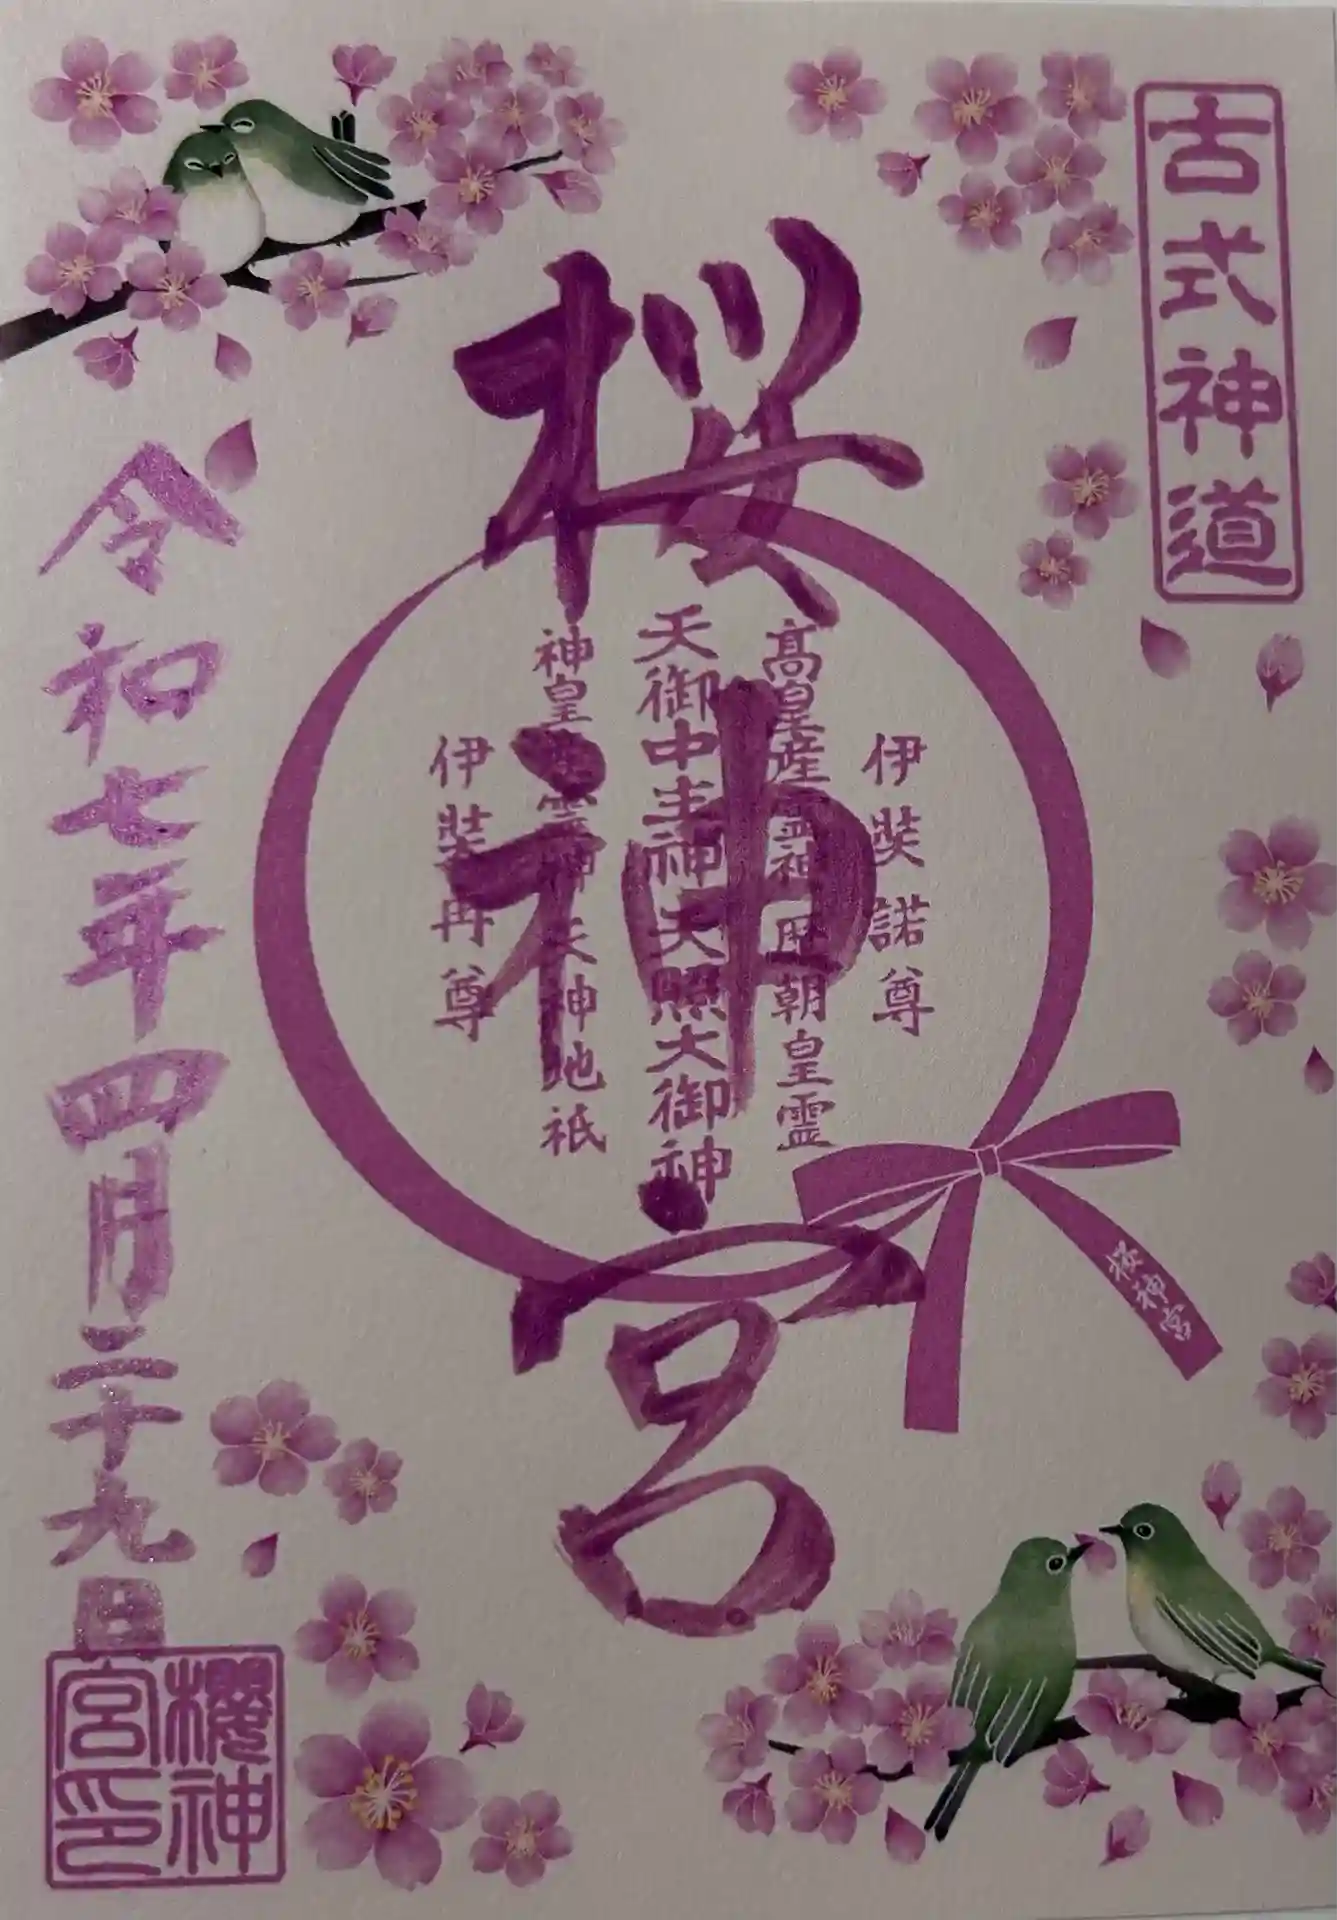 古式神道
桜神宮
伊弉諾尊
高皇産霊神 歴朝皇霊
天御中主神 天照大御神
神皇産霊神 天神地祇
伊弉冉尊
桜神宮
令和七年四月二十九日
櫻神宮印